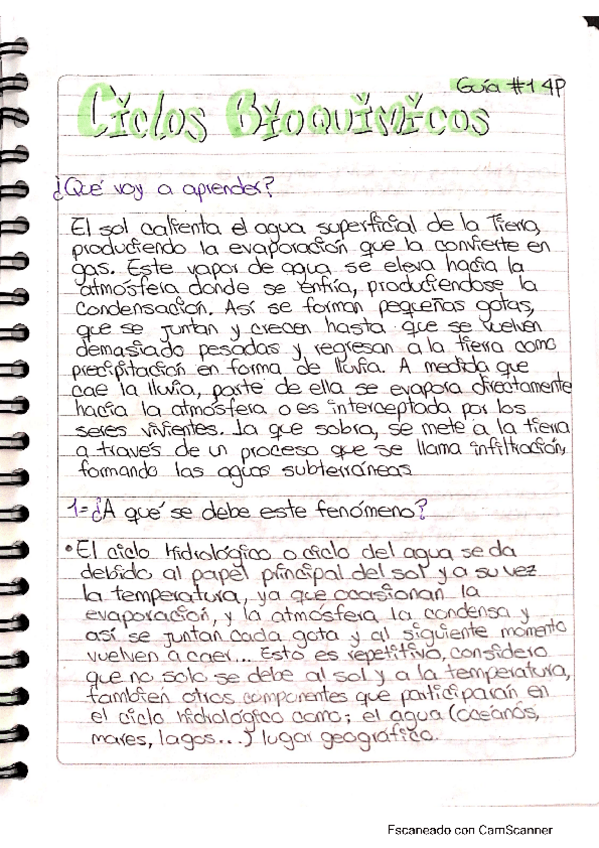 Guía #1 4P
Ciclos Bioquimicos
¿Qué voy a aprender?
El sol calienta el agua superficial de la Tierra,
produciendo la evaporación que la convierte en
gas. Este vapor de agua se eleva hacia la
atmósfera donde se enfría, produciendose la
condensación. Así se forman pequeñas gotas,
que se juntan y crecen hasta que se vuelven
demasiado pesadas y regresan a la tierra como
precipitación en forma de lluvia. A medida que
cae la lluvia, parte de ella se evapora directamente
hacia la atmósfera o es interceptada por los
seres vivientes. La que sobra, se mete a la tierra
a través de un proceso que se llama infiltración,
formando las aguas subterráneas
1=¿A qué se debe este fenómeno?
• El ciclo hidrológico o ciclo del agua se da
debido al papel principal del sol y a su vez
la temperatura, ya que ocasionan la
evaporación, y la atmósfera la condensa y
así se juntan cada gota y al siguiente momento
vuelven a caer... Esto es repetitivo, considero
que no solo se debe al sol y a la temperatura,
también otros componentes que participarán en
el ciclo hidrológico como; el agua (oceanós,
mares, lagos...) lugar geográfico.
Escaneado con CamScanner